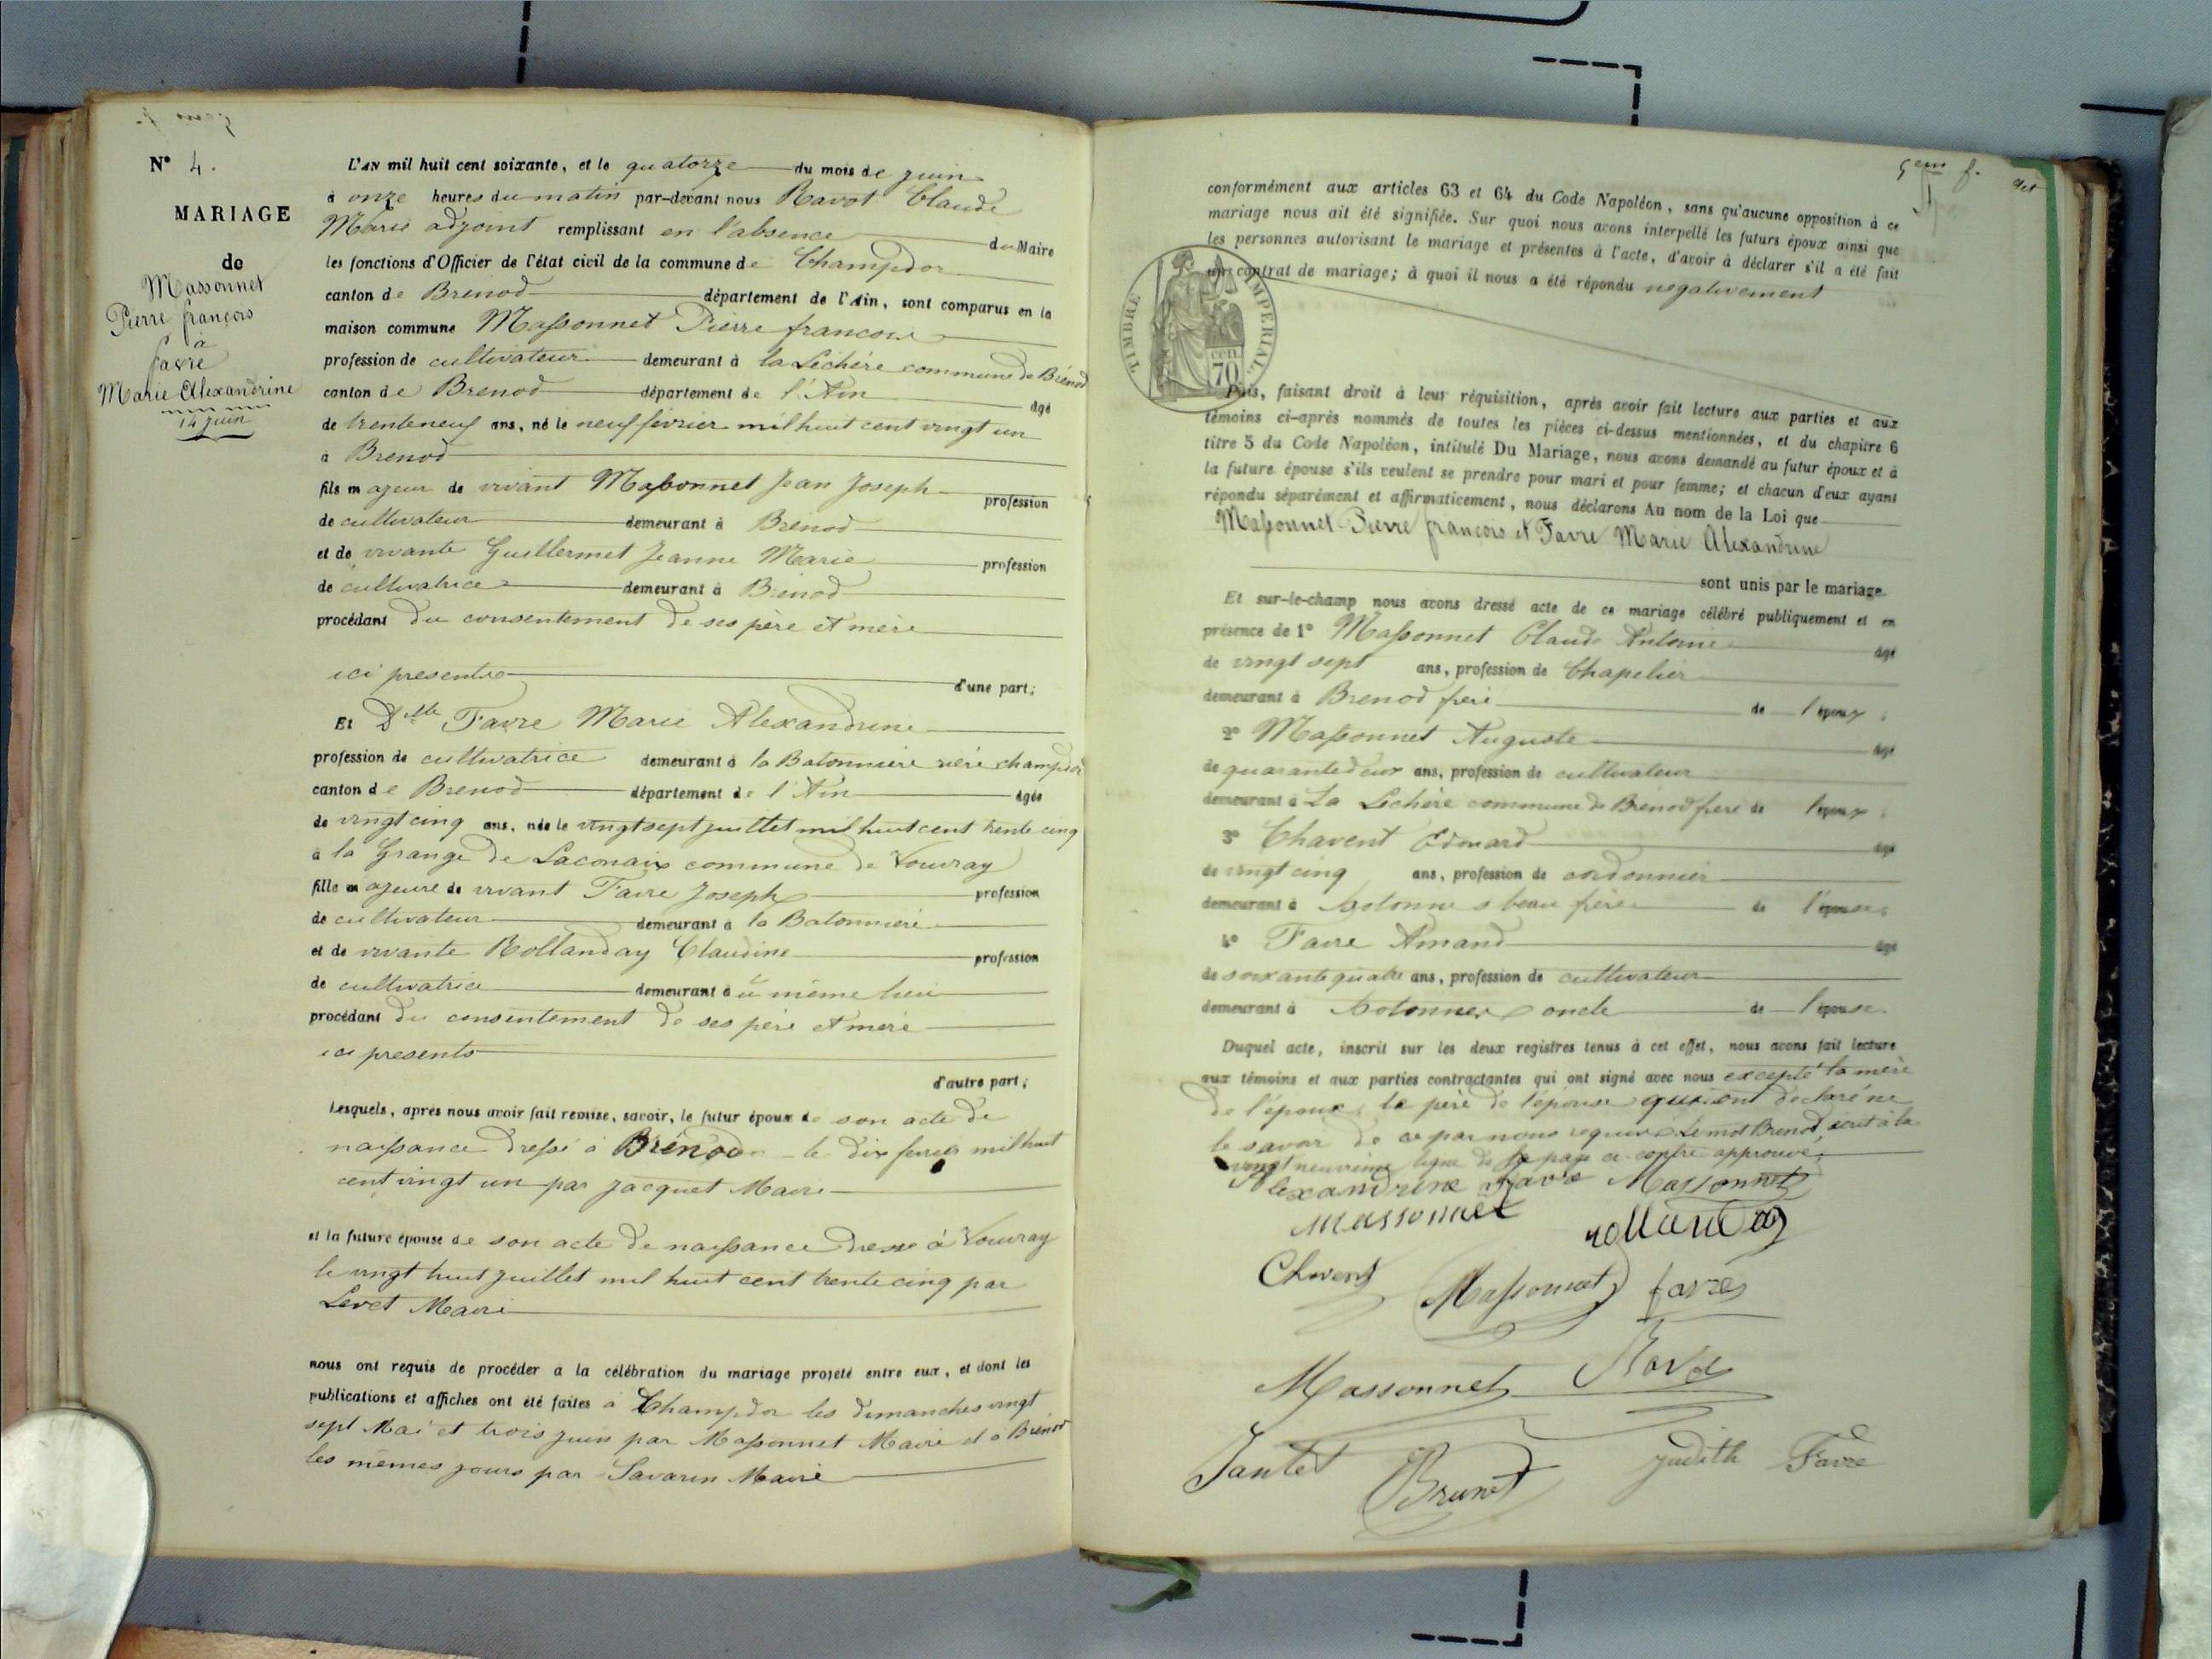 N° 4.
MARIAGE
de
Massonnet
Pierre françois
à
favre
Marie Alexandrine
14 juin
L'AN mil huit cent soixante, et le quatorze du mois de juin
à onze heures du matin par-devant nous Ravot Claude
Marie adjoint remplissant en l'absence du Maire
les fonctions d'Officier de l'état civil de la commune de Champdor
canton de Brenod département de l'Ain, sont comparus en la
maison commune Massonnet Pierre francois
profession de cultivateur demeurant à la Lechère commune de Brénod
canton de Brenod département de l'Ain âgé
de trente neuf ans, né le neuf février mil huit cent vingt un
à Brenod
fils majeur de vivant Massonnet Jean Joseph profession
de cultivateur demeurant à Brenod
et de vivante Guillermet Jeanne Marie profession
de cultivatrice demeurant à Brenod
procédant du consentement de ses père et mère
ici presents d'une part;
Et Dlle Favre Marie Alexandrine
profession de cultivatrice demeurant à la Batonniere rière champdor
canton de Brenod département de l'Ain âgée
de vingt cinq ans, née le vingt sept juillet mil huit cent trente cinq
à la Grange de Laconaix commune de Vouvray
fille majeure de vivant Favre Joseph profession
de cultivateur demeurant à la Batonniere
et de vivante Rollanday Claudine profession
de cultivatrice demeurant à u même lieu
procédant du consentement de ses père et mère
ici presents
d'autre part;
Lesquels, après nous avoir fait remise, savoir, le futur époux de son acte de
naissance dressé à Brénod le dix fevrier mil huit
cent vingt un par Jacquet Maire
et la future épouse de son acte de naissance dressé à Vouvray
le vingt huit juillet mil huit cent trente cinq par
Levet Maire
nous ont requis de procéder à la célébration du mariage projeté entre eux, et dont les
publications et affiches ont été faites à Champdor les dimanches vingt
sept Mai et trois juin par Massonnet Maire et a Brénod
les mêmes jours par Savarin Maire
5eme f.
conformément aux articles 63 et 64 du Code Napoléon, sans qu'aucune opposition à ce
mariage nous ait été signifiée. Sur quoi nous avons interpellé les futurs époux ainsi que
les personnes autorisant le mariage et présentes à l'acte, d'avoir à déclarer s'il a été fait
un contrat de mariage; à quoi il nous a été répondu negativement
TIMBRE IMPERIAL
cen
70
Puis, faisant droit à leur réquisition, après avoir fait lecture aux parties et aux
témoins ci-après nommés de toutes les pièces ci-dessus mentionnées, et du chapitre 6
titre 5 du Code Napoléon, intitulé Du Mariage, nous avons demandé au futur époux et à
la future épouse s'ils veulent se prendre pour mari et pour femme; et chacun d'eux ayant
répondu séparément et affirmativement, nous déclarons Au nom de la Loi que
Massonnet Pierre françois et Favre Marie Alexandrine
sont unis par le mariage.
Et sur-le-champ nous avons dressé acte de ce mariage célébré publiquement et en
présence de 1° Massonnet Claude Antoine âgé
de vingt sept ans, profession de Chapelier
demeurant à Brenod frère de l'époux;
2° Massonnet Auguste âgé
de quarante deux ans, profession de cultivateur
demeurant à La Lechère commune de Brénod frère de l'époux;
3° Chavent Edouard âgé
de vingt cinq ans, profession de cordonnier
demeurant à hotonnes beau frère de l'épouse;
4° Favre Amand âgé
de soixante quatre ans, profession de cultivateur
demeurant à hotonnes oncle de l'épouse.
Duquel acte, inscrit sur les deux registres tenus à cet effet, nous avons fait lecture
aux témoins et aux parties contractantes qui ont signé avec nous excepté la mère
de l'époux, le père de l'épouse qui ont déclaré ne
le savoir de ce par nous requis. Le mot Brenod, écrit à la
vingt neuvième ligne de la page ci-contre approuvé.
Alexandrine Favre Massonnet
Massonnet rollanday
Chavent Massonnet favre
Massonnet Ravot
Jantet Brunet Judith Favre